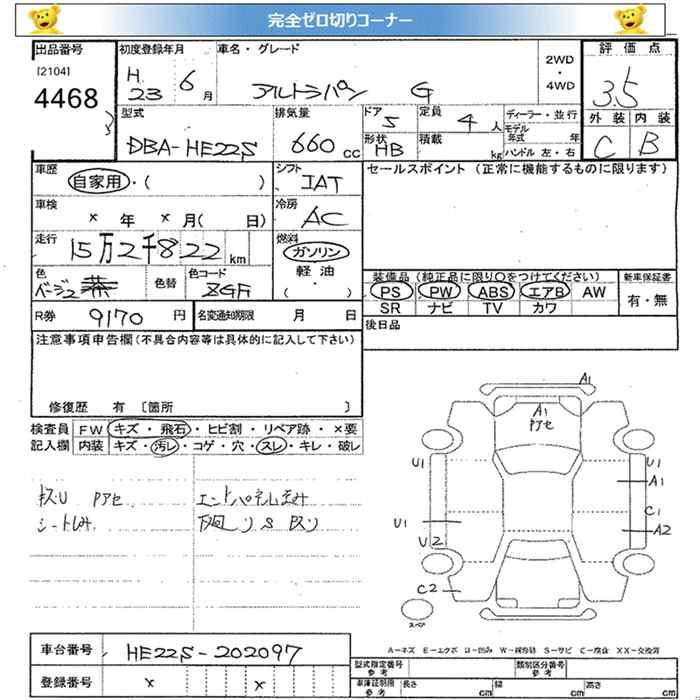 完全ゼロ切りコーナー
出品番号 初度登録年月 車名・グレード 評価点
[2104] 4468 H 23 6月 アルトラパン G 2WD・4WD 3.5
型式 排気量 ドア 5 定員 4人 ディーラー・並行 外装 内装
DBA-HE22S 660cc 形状 HB 積載 kg モデル年式 年 ハンドル 左・右 C B
車歴 自家用・( ) シフト IAT セールスポイント (正常に機能するものに限ります)
車検 × 年 × 月( 日) 冷房 AC
走行 15万2千822km 燃料 ガソリン 軽油 ・( )
装備品 (純正品に限り○をつけてください) 新車保証書
色 ベージュ 色替 色コード ZGA PS PW ABS エアB AW 有・無
SR ナビ TV カワ
R券 9170円 名変通知期限 月 日 後日品
注意事項申告欄(不具合内容等は具体的に記入して下さい)
修復歴 有 〔箇所 〕
検査員 FW キズ・飛石・ヒビ割・リペア跡・×要
記入欄 内装 キズ・汚レ・コゲ・穴・スレ・キレ・破レ
キズU Pアセ エンドパネル歪み
シートしみ 下廻り S 及り
A1
A1
Pアセ
U1 U1
A1
C1
U1 A2
U2
C2
スペア
A=キズ E=エクボ U=凹み W=補修跡 S=サビ C=腐食 XX=交換済
車台番号 HE22S-202097
型式指定番号 参考 類別区分番号 参考
登録番号 × ×
車庫証明用 参考 長さ cm 幅 cm 高さ cm